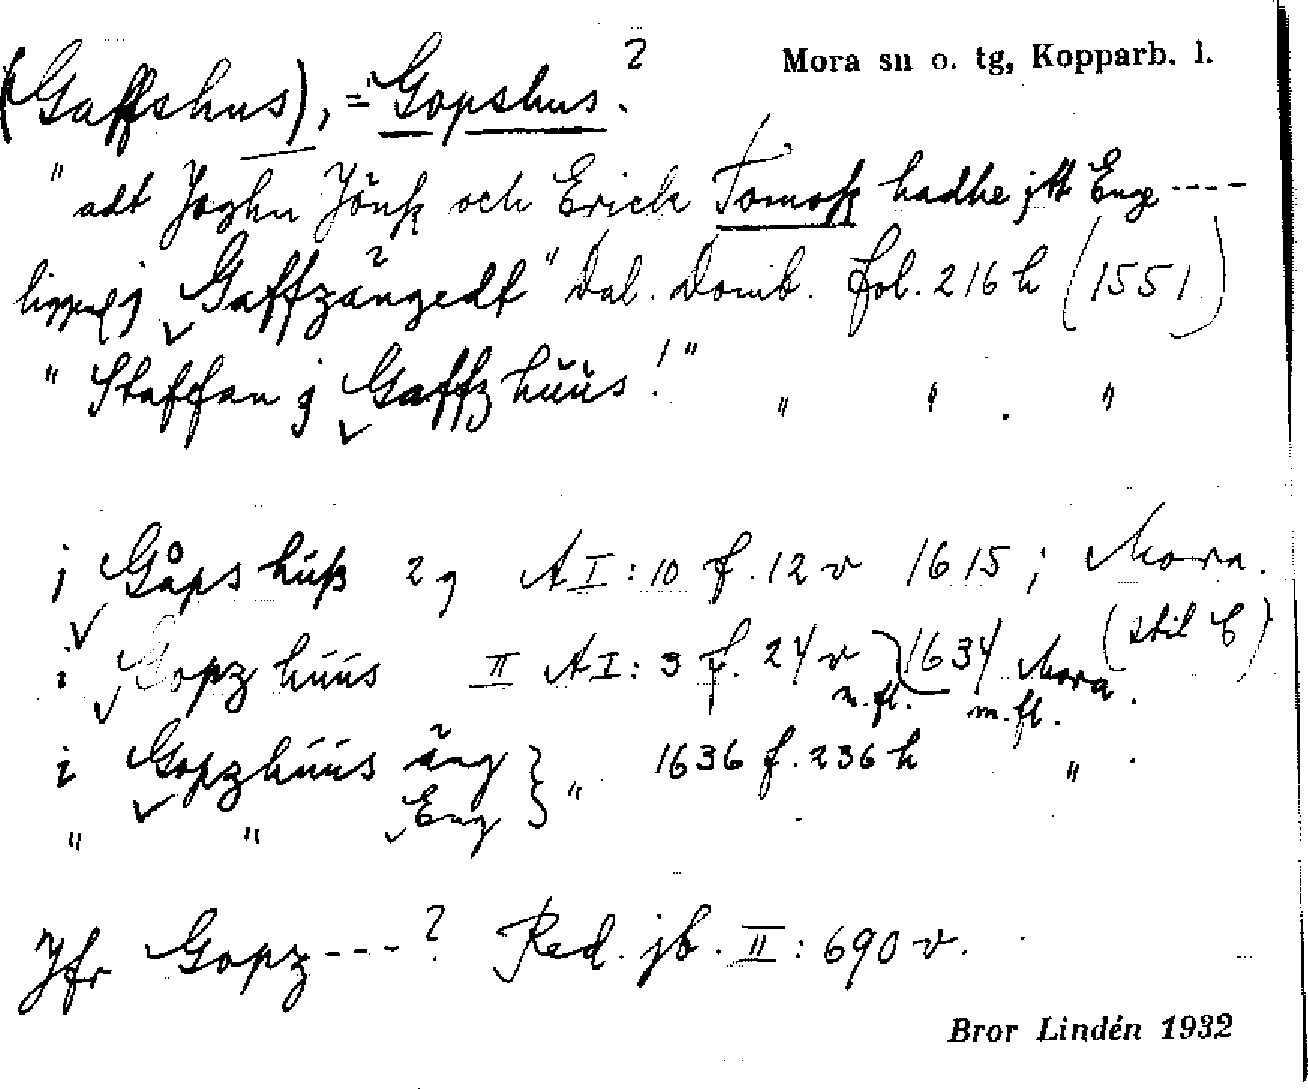 Mora sn o. tg, Kopparb. l.
(Gaffshus), = Gopshus. ?
" adt Joghn Jönß och Erich Tomoß hadhe jtt Eng ----
liggend j Gaffzängedt" Dal. domb. fol. 216 h (1551)
" Staffan j Gaffz hüüs!" " " . "
j Gåps hüß 2 g A I : 10 f. 12 v 1615 ; Mora.
(stil b)
i Gopz húús II A I : 3 f. 24 v 1634 Mora.
m.fl. m.fl.
i Gopzhúús äng } " 1636 f. 236 h " .
" " Eng
Jfr Gopz---? Red. jb. II : 690 v.
Bror Lindén 1932